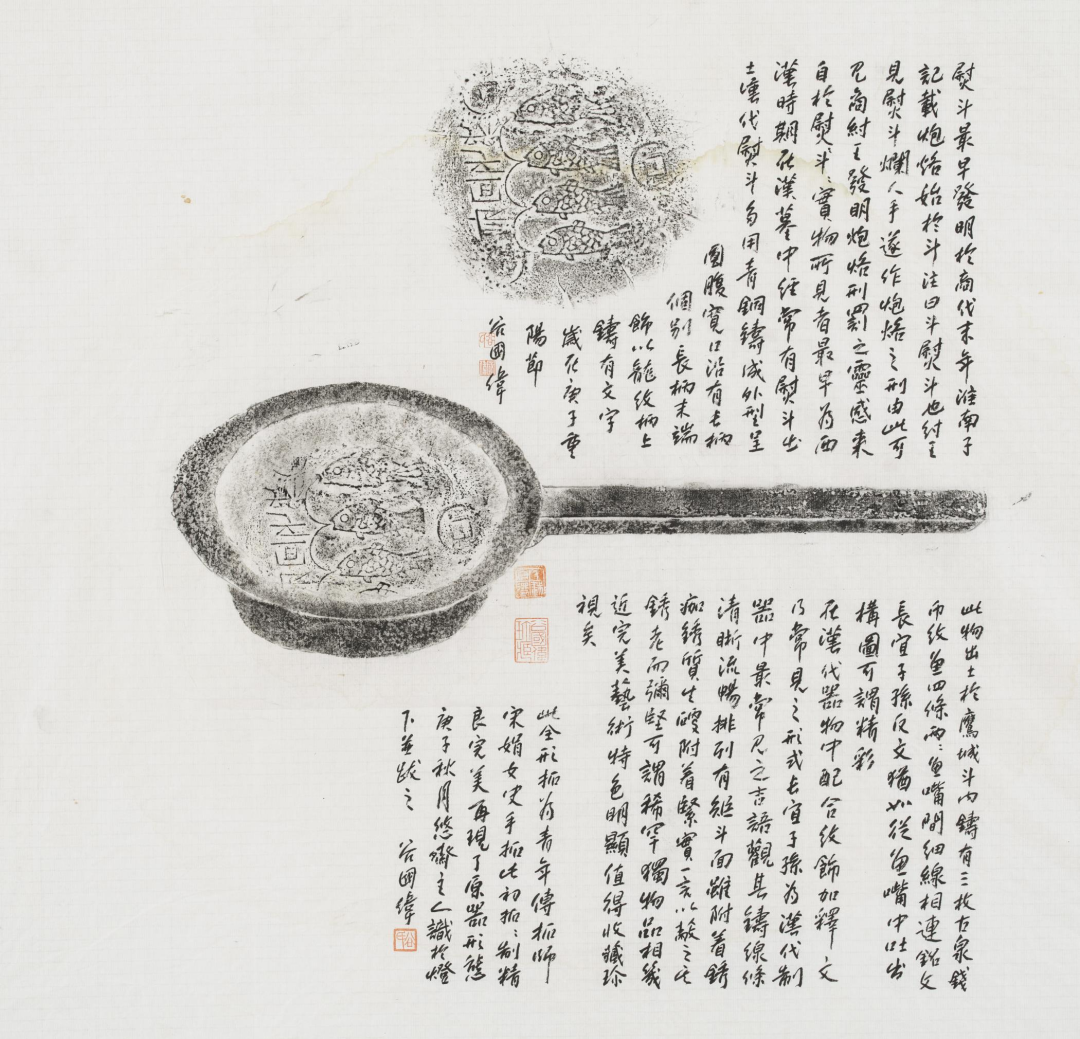 熨斗最早發明於商代末年淮南子
記載炮烙始於斗注曰斗熨斗也紂王
見熨斗爛人手遂作炮烙之刑由此可
見商紂王發明炮烙刑罰之靈感來
自於熨斗熨斗實物所見者最早為西
漢時期在漢墓中經常有熨斗出
土漢代熨斗多用青銅鑄成外型呈
圓腹寬口沿有長柄
個別長柄末端
飾以龍紋柄上
鑄有文字
歲在庚子重
陽節
谷國偉
此物出土於鷹城斗內鑄有三枚古泉錢
幣紋魚四條兩兩魚嘴間細線相連銘文
長宜子孫反文猶如從魚嘴中吐出
構圖可謂精彩
在漢代器物中配合紋飾加釋文
乃常見之形式長宜子孫為漢代制
器中最常見之吉語觀其鑄線條
清晰流暢排列有矩斗面雖附着銹
痂銹質生硬附着緊實
銹老而彌堅可謂稀罕獨物品相幾
近完美藝術特色明顯值得收藏珍
視矣
此全形拓為青年傳拓師
宋娟女史手拓此初拓初拓制精
良完美再現了原器形態
庚子秋月悠齋主人識於燈
下並跋之 谷國偉